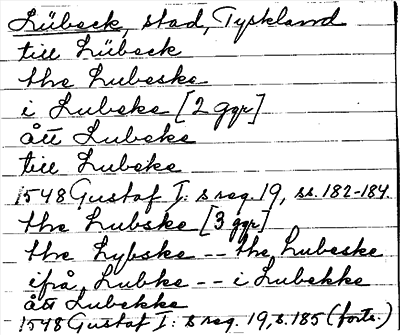 Lübeck, stad, Tyskland
till Lübeck
the Lubeske
i Lubeke [2 ggr]
ått Lubeke
till Lubeke
1548 Gustaf I: s reg. 19, ss. 182-184.
the Lubske [3 ggr]
the Lybske -- the Lubeske
ifrå Lubke -- i Lubekke
ått Lubekke
1548 Gustaf I: s reg. 19, s. 185 (forts.)